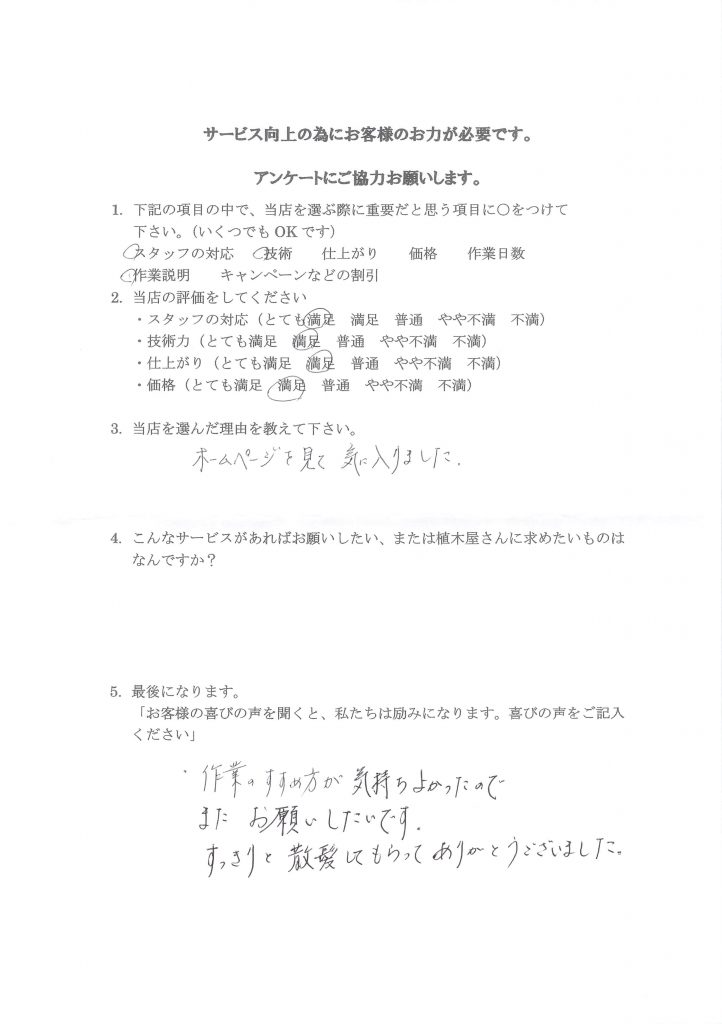 サービス向上の為にお客様のお力が必要です。
アンケートにご協力お願いします。
1. 下記の項目の中で、当店を選ぶ際に重要だと思う項目に〇をつけて
下さい。（いくつでも OK です）
スタッフの対応　技術　仕上がり　価格　作業日数
作業説明　キャンペーンなどの割引
2. 当店の評価をしてください
・スタッフの対応（とても満足　満足　普通　やや不満　不満）
・技術力（とても満足　満足　普通　やや不満　不満）
・仕上がり（とても満足　満足　普通　やや不満　不満）
・価格（とても満足　満足　普通　やや不満　不満）
3. 当店を選んだ理由を教えて下さい。
ホームページを見て 気に入りました.
4. こんなサービスがあればお願いしたい、または植木屋さんに求めたいものは
なんですか？
5. 最後になります。
「お客様の喜びの声を聞くと、私たちは励みになります。喜びの声をご記入
ください」
・作業のすすめ方が 気持ちよかったので
また お願いしたいです.
すっきりと 散髪してもらって ありがとうございました。